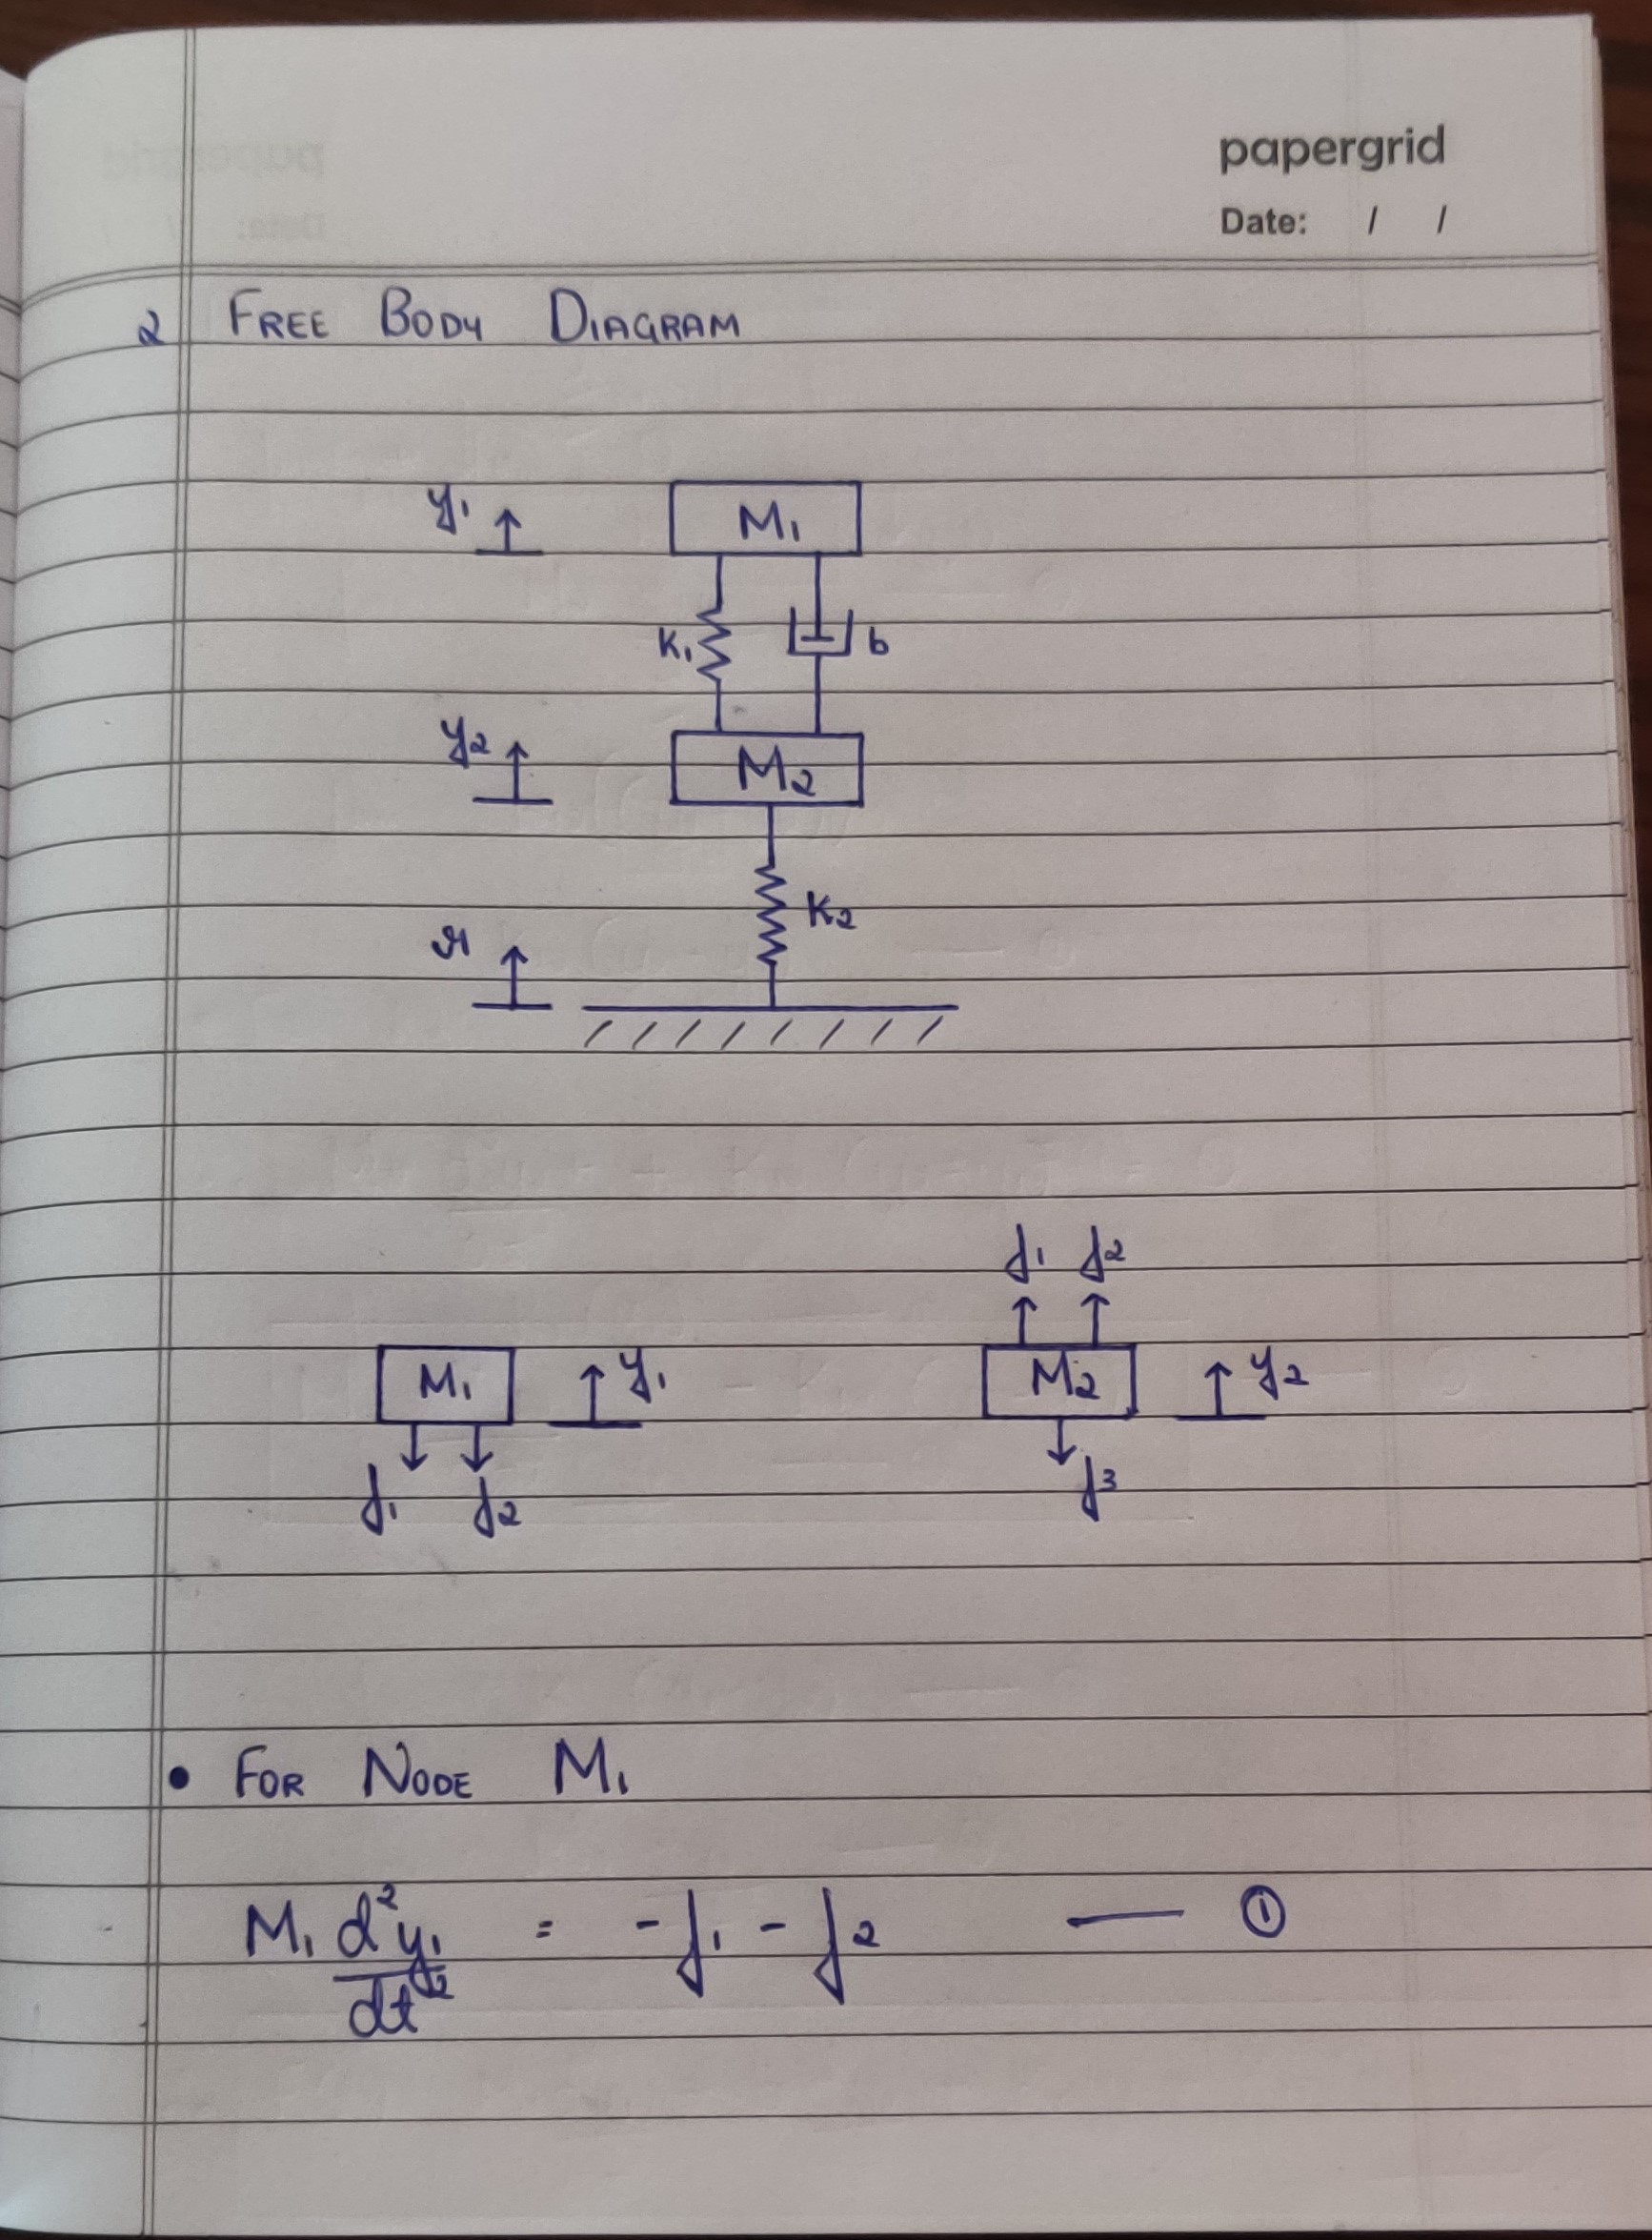 papergrid
Date: / /
2 FREE BODY DIAGRAM
y₁
M₁
K₁ b
y₂
M₂
K₂
r
f₁ f₂
M₁ y₁
M₂ y₂
f₁ f₂
f₃
• FOR NODE M₁
M₁ d²y₁/dt² = -f₁ - f₂ — ①